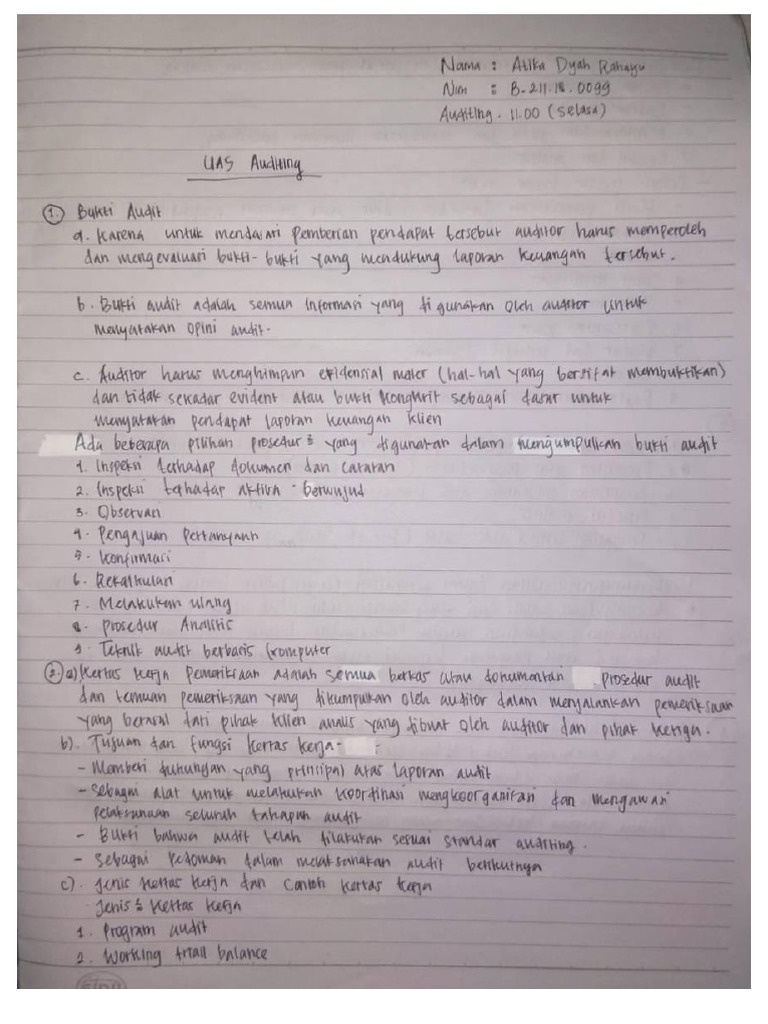 Nama : Atika Dyah Rahayu
Nim : B.211.18.0099
Auditing . 11.00 (Selasa)
UAS Auditing
1. Bukti Audit
a. Karena untuk mendasari pemberian pendapat tersebut auditor harus memperoleh
dan mengevaluasi bukti-bukti yang mendukung laporan keuangan tersebut.
b. Bukti audit adalah semua informasi yang digunakan oleh auditor untuk
menyatakan opini audit.
c. Auditor harus menghimpun evidensial mater (hal-hal yang bersifat membuktikan)
dan tidak sekadar evident atau bukti kongkrit sebagai dasar untuk
menyatakan pendapat laporan keuangan klien
Ada beberapa pilihan prosedur² yang digunakan dalam mengumpulkan bukti audit
1. Inspeksi terhadap dokumen dan catatan
2. Inspeksi terhadap aktiva berwujud
3. Observasi
4. Pengajuan Pertanyaan
5. Konfirmasi
6. Rekalkulasi
7. Melakukan ulang
8. Prosedur Analitis
9. Teknik audit berbasis komputer
2. a) Kertas Kerja Pemeriksaan adalah semua berkas atau dokumentasi prosedur audit
dan temuan pemeriksaan yang dikumpulkan oleh auditor dalam menjalankan pemeriksaan
yang berasal dari pihak klien analis yang dibuat oleh auditor dan pihak ketiga.
b). Tujuan dan fungsi kertas kerja :
- Memberi dukungan yang principal atas laporan audit
- sebagai alat untuk melakukan koordinasi mengkoorganisasi dan mengawasi
pelaksanaan seluruh tahapan audit
- Bukti bahwa audit telah dilakukan sesuai standar auditing.
- sebagai pedoman dalam melaksanakan audit berikutnya
c). Jenis kertas kerja dan Contoh kertas kerja
Jenis² kertas kerja
1. Program audit
2. Working triall balance